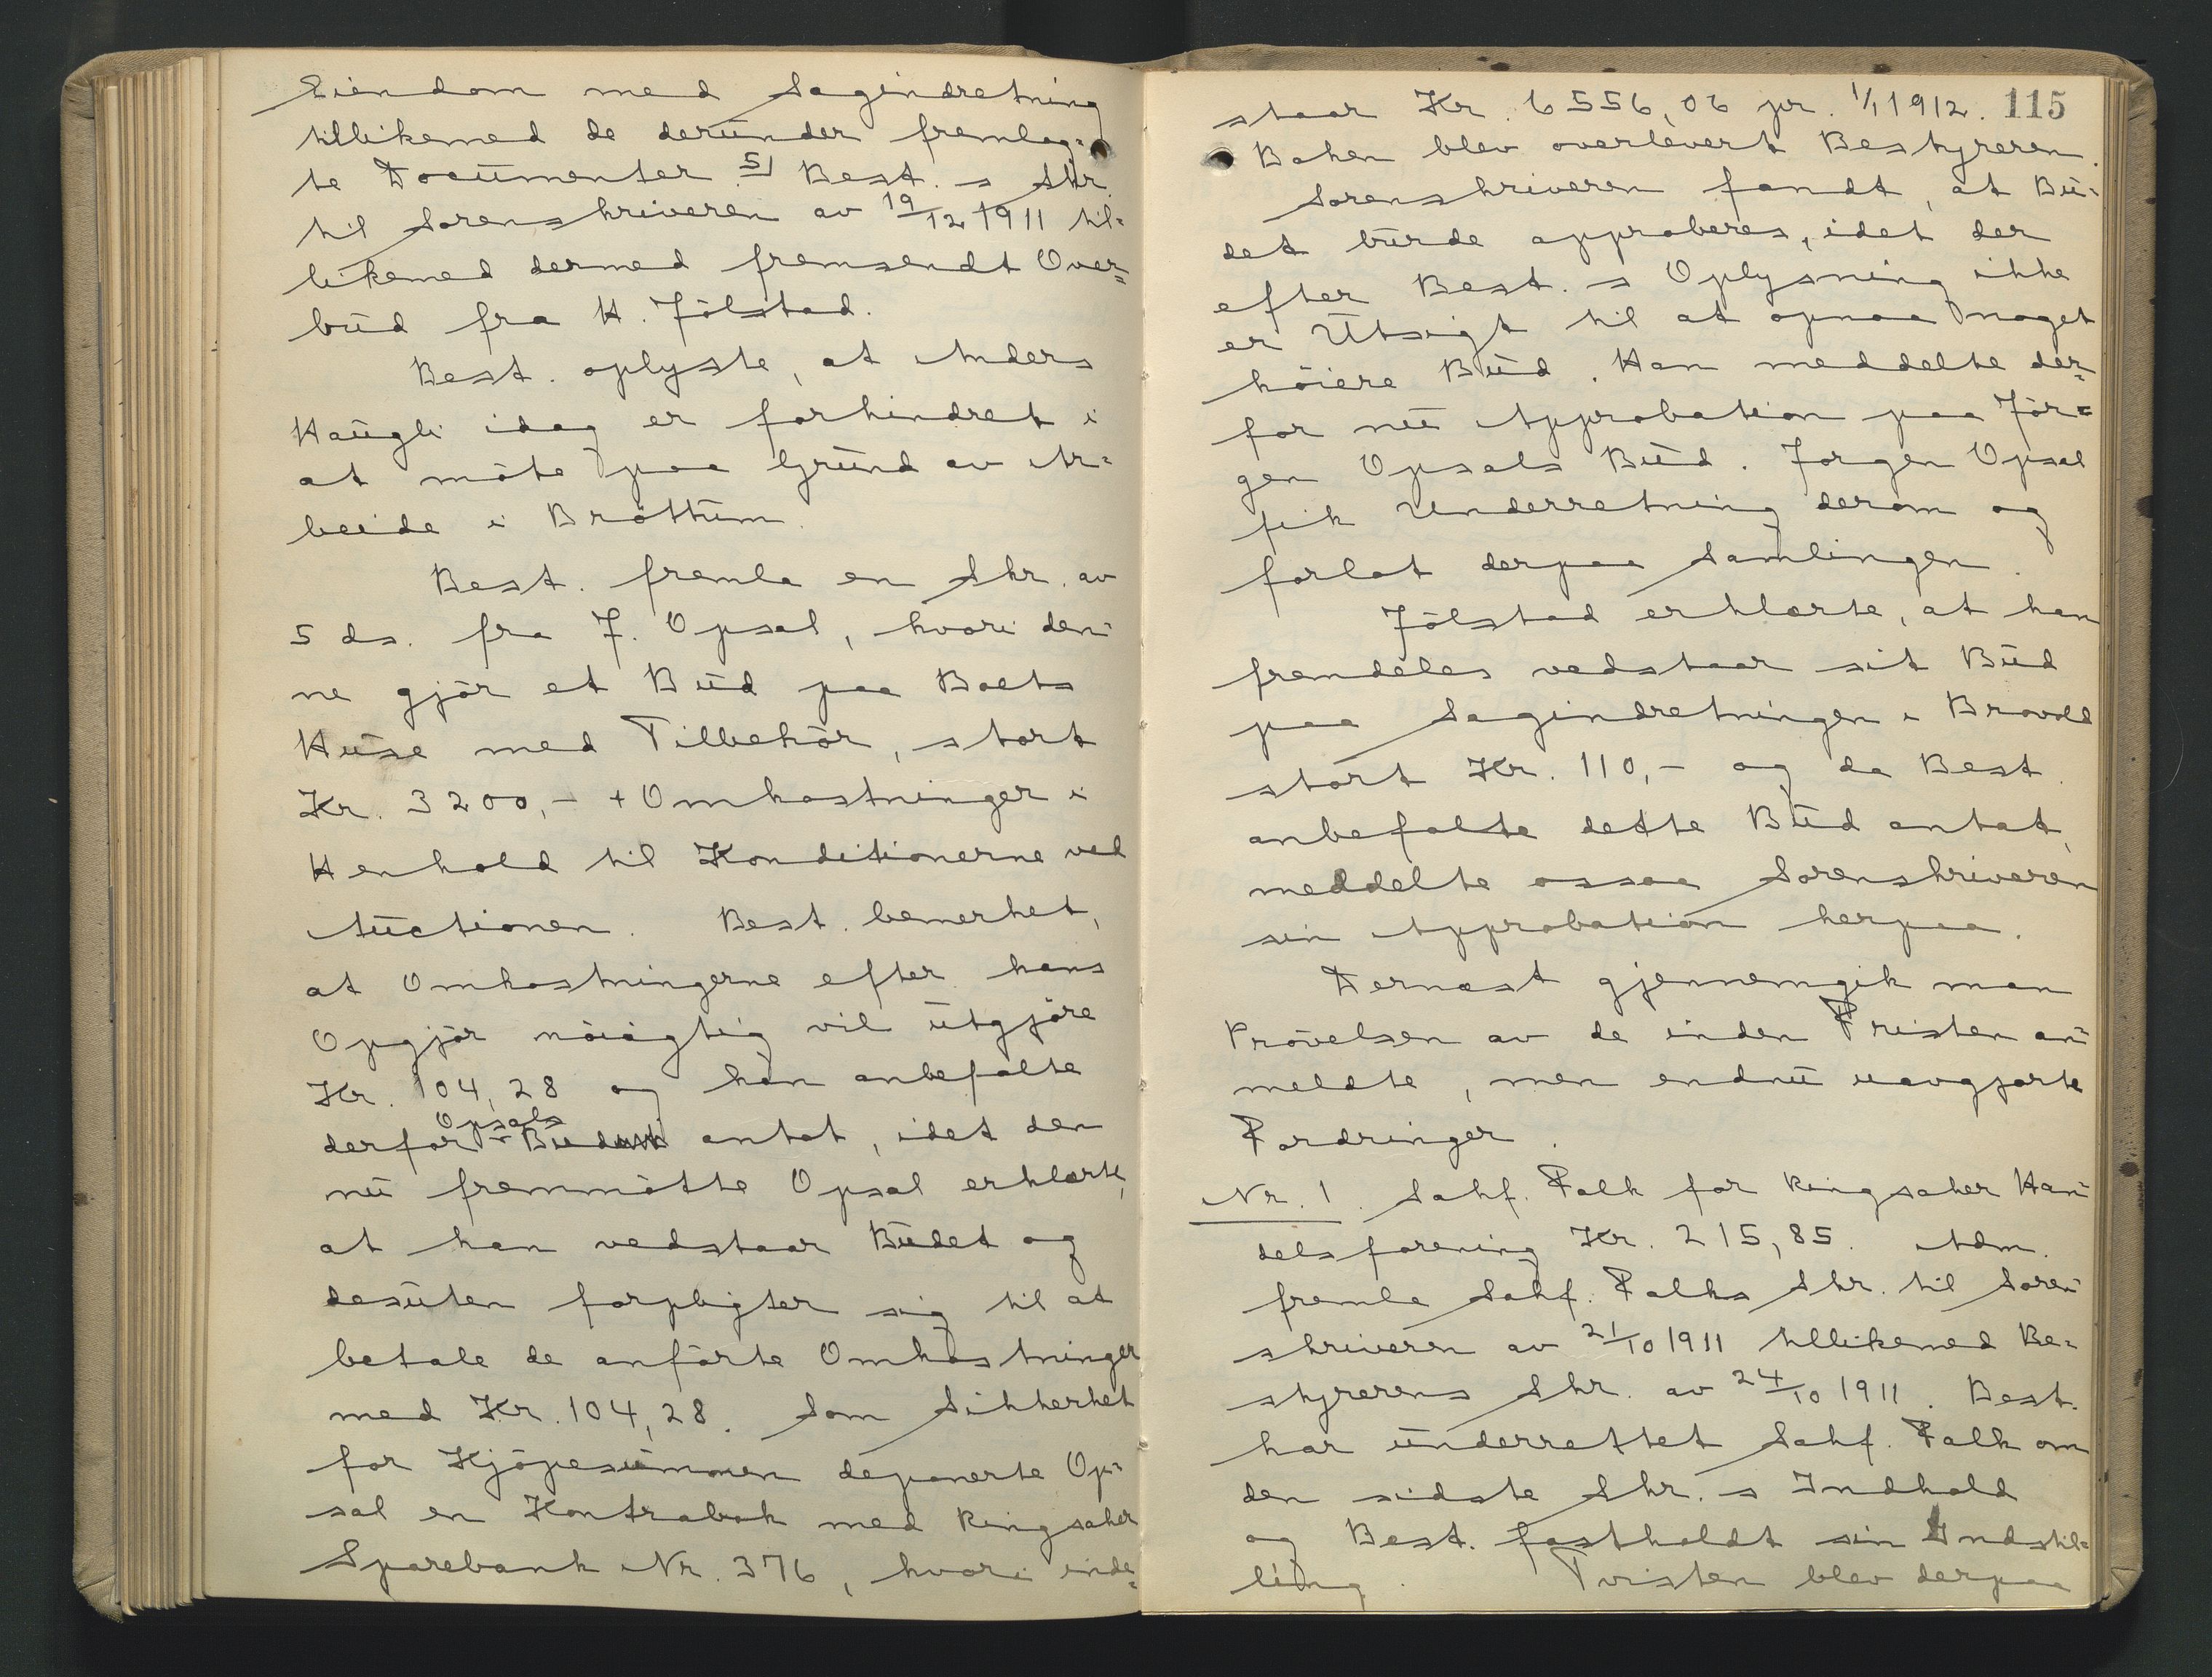 Eiendom med Sagindretning
tillikemed de derunder fremlag-
te Documenter. 5) Best.s Skr.
til Sorenskriveren av 19/12 1911 til-
likemed dermed fremsendt Over-
bud fra H. Jölstad.
Best. oplyste, at Anders
Haugli idag er forhindret i
at möte paa Grund av Ar-
beide i Bröttum.
Best. fremla en Skr. av
5 ds. fra J. Opsal, hvori den-
ne gjör et Bud paa Boets
Huse med Tilbehör, stort
Kr. 3200,- + Omkostninger i
Henhold til Konditionerne ved
Auctionen. Best. bemerket,
at Omkostningerne efter hans
Opgjör nöiagtig vil utgjöre
Kr. 104,28 og han anbefalte
derfor Opsals Bud antat, idet den
nu fremmötte Opsal erklærte,
at han vedstaar Budet og
desuten forpligter sig til at
betale de anförte Omkostninger
med Kr. 104,28. Som Sikkerhet
for Kjöpesummen deponerte Op-
sal en Kontrabok med Ringsaker
Sparebank Nr. 376, hvori inde-
115
staar Kr. 6556,06 pr. 1/1 1912.
Boken blev overlevert Bestyreren.
Sorenskriveren fandt, at Bu-
det burde approberes, idet der
efter Best.s Oplysning ikke
er Utsigt til at opnaa noget
höiere Bud. Han meddelte der-
for nu Approbation paa Jör-
gen Opsals Bud. Jorgen Opsal
fik Underretning derom og
forlot derpaa Samlingen.
Jölstad erklærte, at han
fremdeles vedstaar sit Bud
paa Sagindretningen i Brovold
stort Kr. 110,- og da Best.
anbefalte dette Bud antat,
meddelte ossaa Sorenskriveren
sin Approbation herpaa.
Dernæst gjennemgik man
Prövelsen av de inden Fristen an-
meldte, men endnu uavgjorte
Fordringer.
Nr. 1. Sakf. Falk for Ringsaker Han-
delsforening Kr. 215,85. Adm.
fremla Sakf. Falks Skr. til Soren-
skriveren av 21/10 1911 tillikemed Be-
styrerens Skr. av 24/10 1911. Best.
har underrettet Sakf. Falk om
den sidste Skr.s Indhold
og Best. fastholdt sin Indstil-
ling. Tvisten blev derpaa